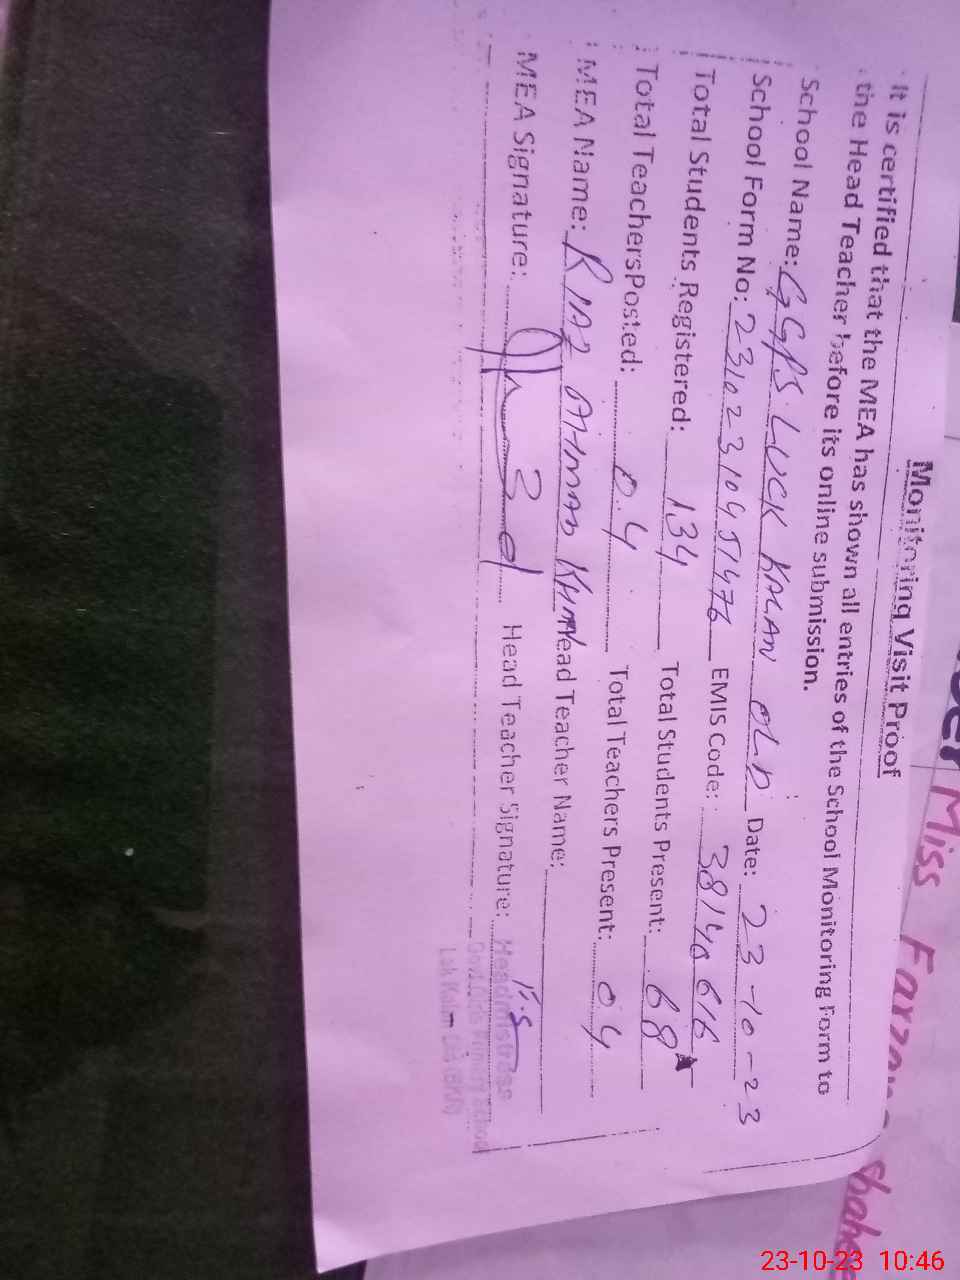 Monitoring Visit Proof
It is certified that the MEA has shown all entries of the School Monitoring Form to
the Head Teacher before its online submission.
School Name: GGPS LUCK KALAN OLD Date: 23-10-23
School Form No: 23102310451476 EMIS Code: 38140616
Total Students Registered: 134 Total Students Present: 68
Total TeachersPosted: 04 Total Teachers Present: 04
MEA Name: RIAZ AHMAD KHAN Head Teacher Name:
MEA Signature: Head Teacher Signature:
Headmistress
Govt. Girls Primary School
Miss Farzana
23-10-23 10:46